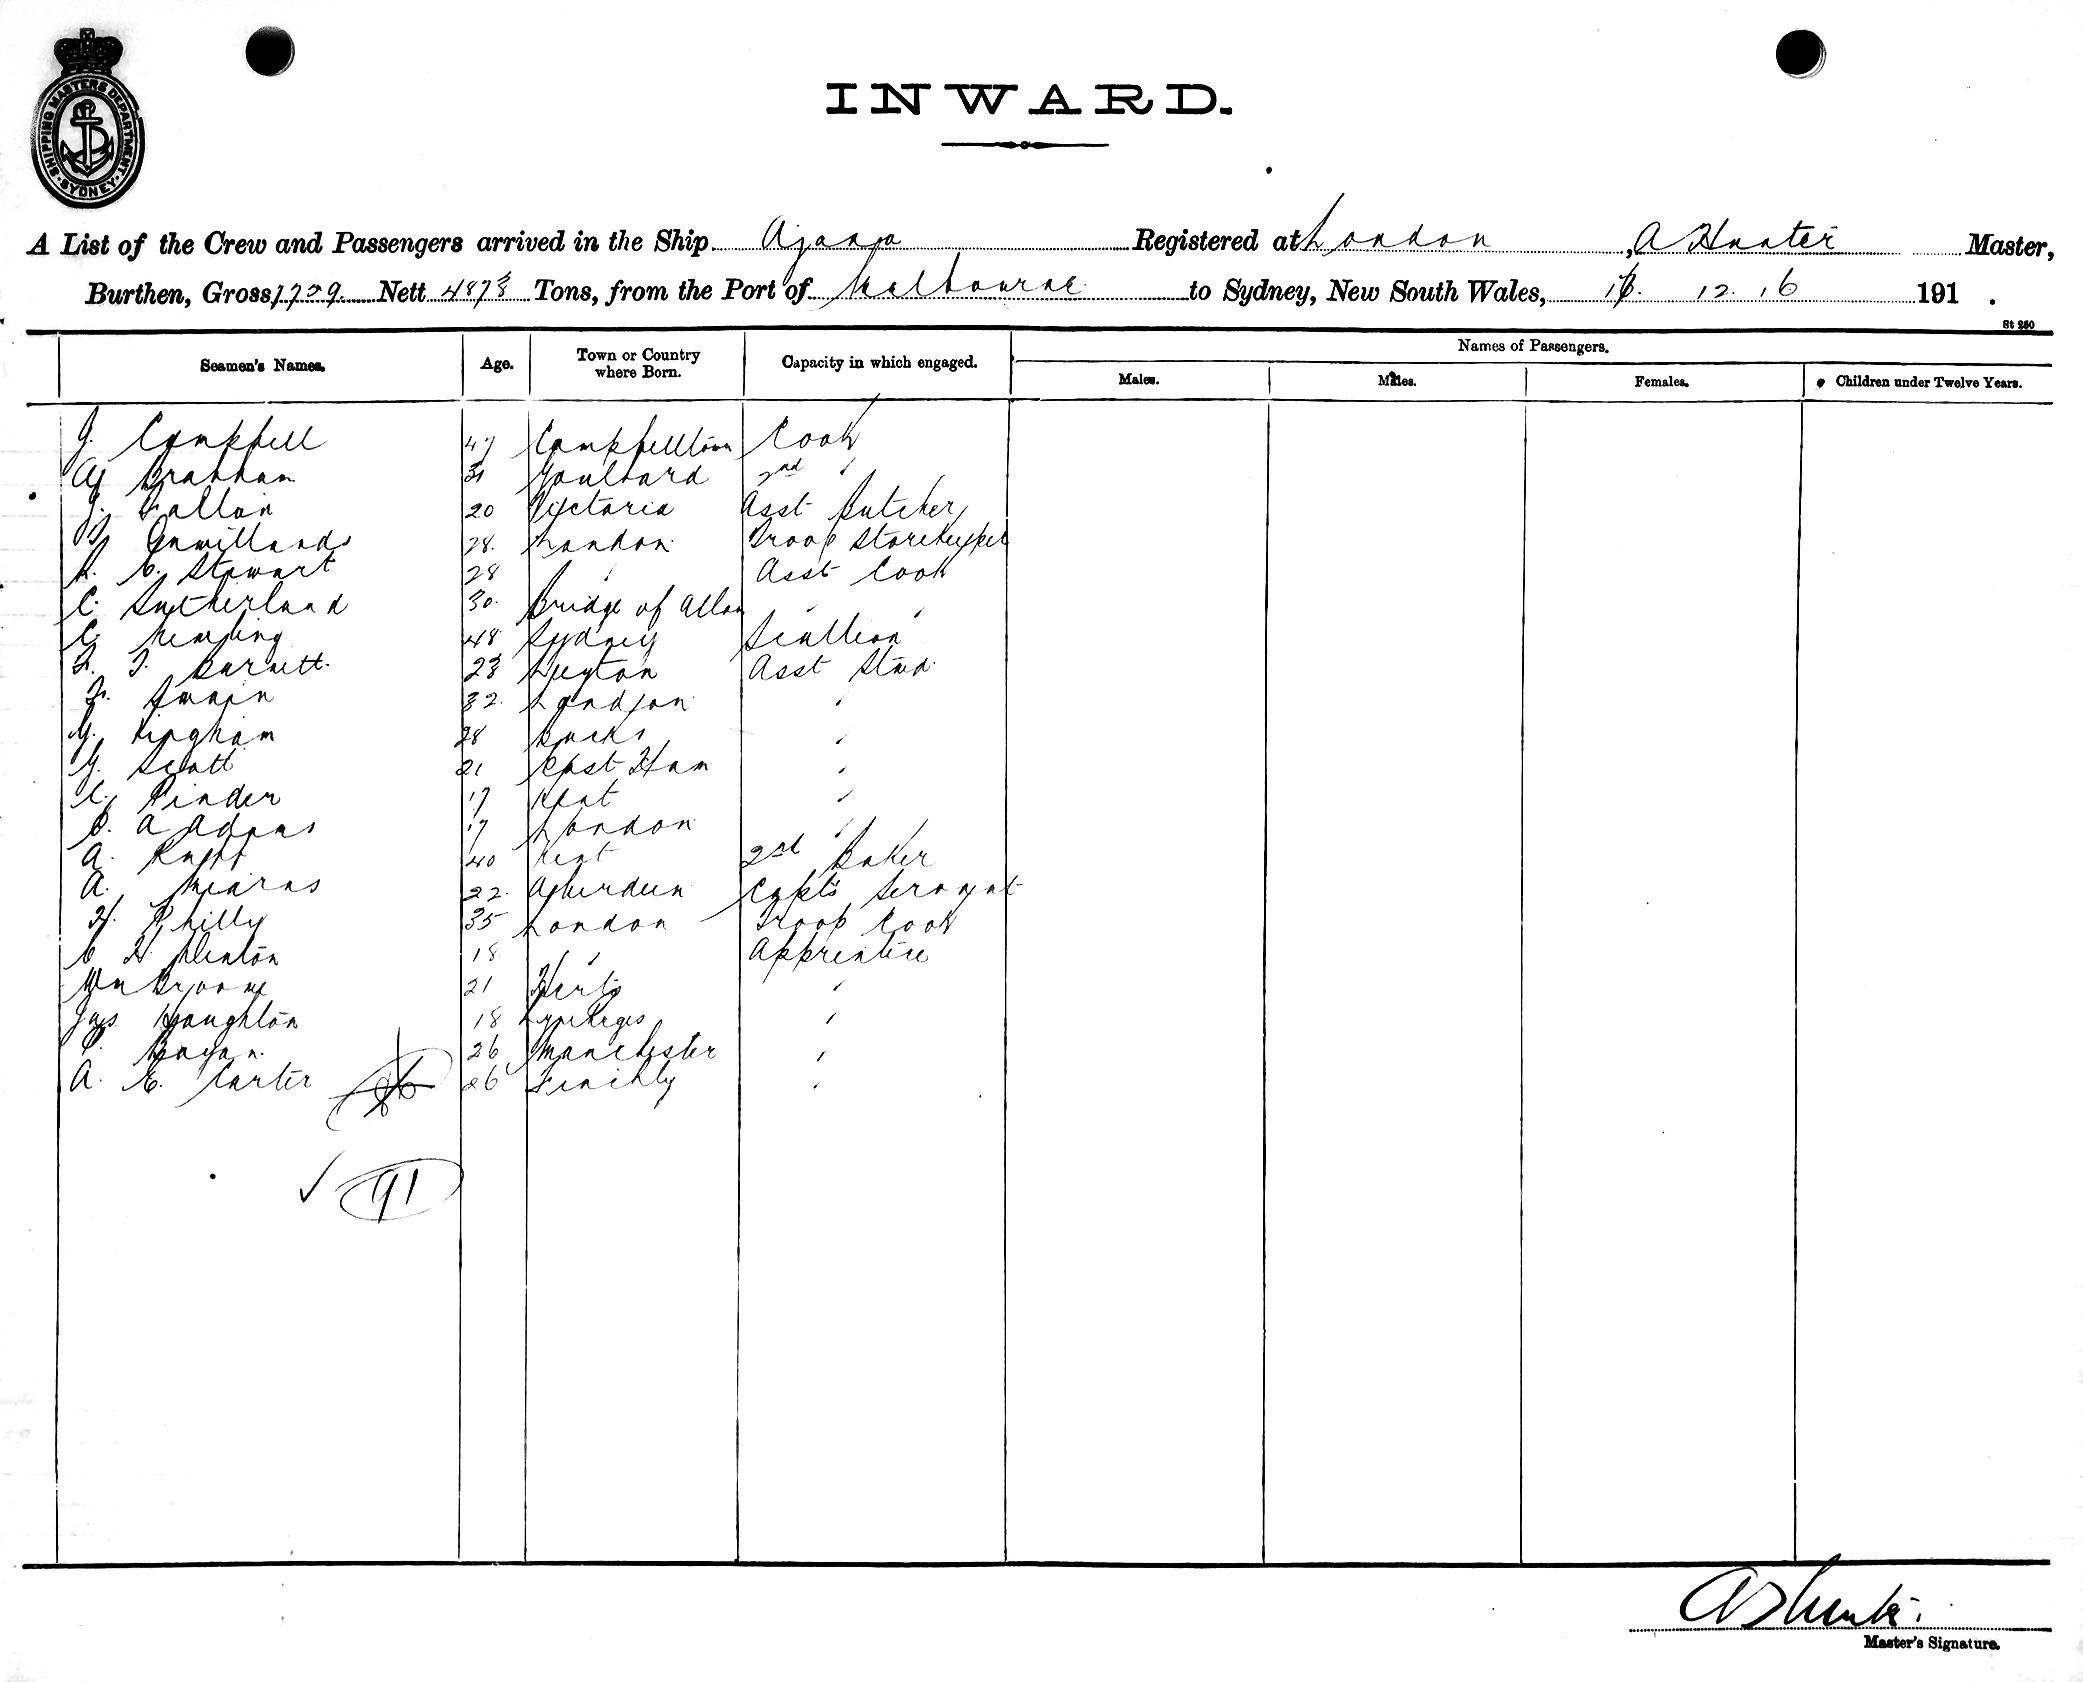 SHIPPING MASTERS DEPARTMENT
SYDNEY
INWARD.
A List of the Crew and Passengers arrived in the Ship Ajana Registered at London, A Hunter Master,
Burthen, Gross 7759 Nett 4873 Tons, from the Port of Melbourne to Sydney, New South Wales, 12.16 191 .
St 250
Seamen's Names. Age. Town or Country where Born. Capacity in which engaged. Names of Passengers.
Males. Males. Females. Children under Twelve Years.
J. Campbell 47 Campbelltown Cook
Graham 31 Goulburd 2nd "
J. Fallon 20 Victoria Asst Butcher
28. London Troop Storekeeper
R. C. Stewart 28 " Asst Cook
C. Sutherland 30. Bridge of Allan " "
C. Kempling 48 Sydney Scullion
F. J. Burnett 23 Leyton Asst Stwd.
F. Swain 32. London "
G. Kingham 28 Bucks "
G. Scott 21 East Ham "
C. Pinder 17 Kent "
C. A Adams 17 London "
A. Knott 40 Kent 2nd Baker
A. Mearns 22. Aberdeen Capt's Servant
H. Philly 35 London Troop Cook
C H Denton 18 " Apprentice
Wm Broome 21 Herts "
Jas Houghton 18 Lyme Regis "
26 Manchester "
A. E. Carter 26 Finchly "
✓ 91
A Hunter.
Master's Signature.